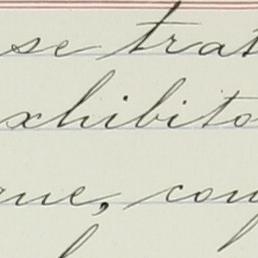 se trat
xhibito
que, con